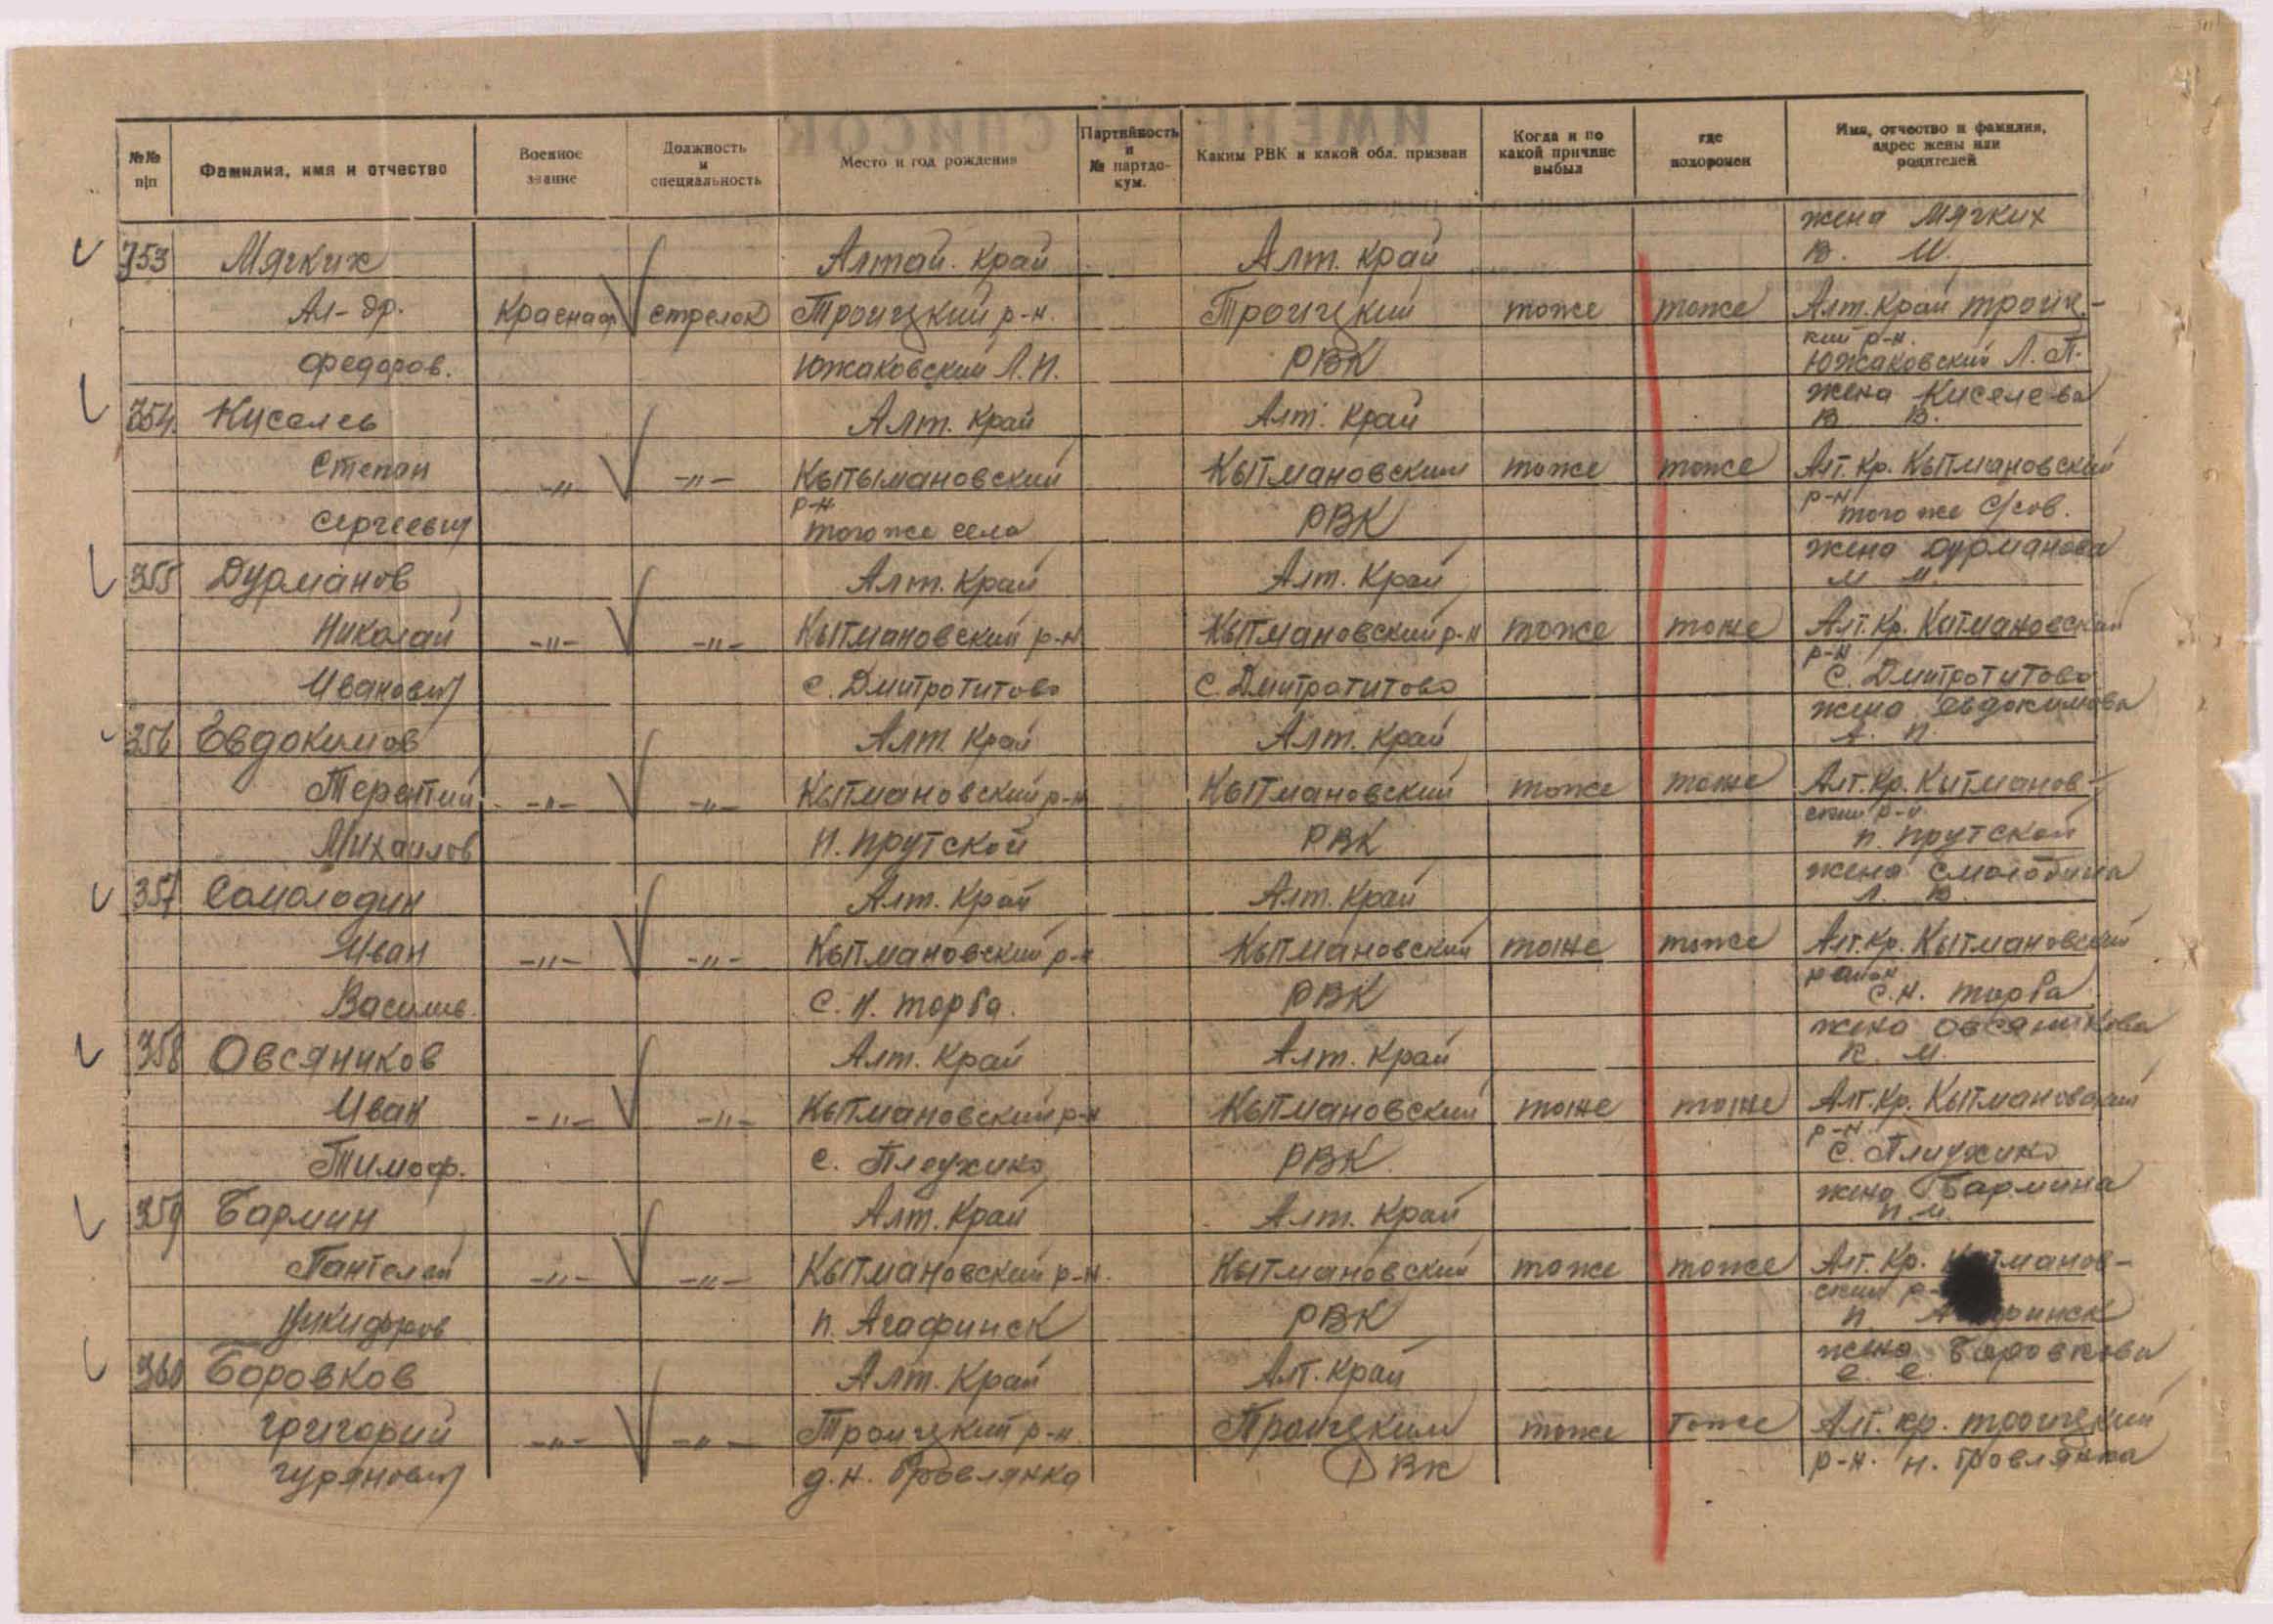 №№ п|п
Фамилия, имя и отчество
Военное звание
Должность и специальность
Место и год рождения
Партийность и № партдокум.
Каким РВК и какой обл. призван
Когда и по какой причине выбыл
где похоронен
Имя, отчество и фамилия, адрес жены или родителей
жена Мягких
353 Мягких Алтай. край Алт. край В. И.
Ал-др. Красноар стрелок Троицкий р-н. Троицкий тоже тоже Алт. край троиц-
кий р-н.
Федоров. Южаковский Л.П. РВК Южаковский Л.П.
жена Киселева
354. Киселев Алт. край Алт. край В В.
Степан -"- -"- Кытымановский Кытмановский тоже тоже Алт. Кр. Кытмановский
р-н р-н
Сергеевич того же села РВК того же с/сов.
жена Дурманова
355 Дурманов Алт. Край Алт. Край М М.
Николай -"- -"- Кытмановский р-н Кытмановский р-н тоже тоже Алт. Кр. Китмановский
р-н
Иванович с. Дмитротитово С. Дмитротитово С. Дмитротитово
жена Евдокимова
356 Евдокимов Алт. Край Алт. Край А. П.
Терентий -"- -"- Кытмановский р-н Кытмановский тоже тоже Алт. Кр. Китманов-
ский р-н
Михайлов п. прутской РВК п. прутской
жена Смолодина
357 Сомолодин Алт. Край Алт. Край А. В.
Иван -"- -"- Кытмановский р-н Кытмановский тоже тоже Алт. Кр. Кытмановский
район
Васильев. С. Н. тарба. РВК С. Н. тарба
жена Овсяникова
358 Овсяников Алт. Край Алт. Край К. М.
Иван -"- -"- Кытмановский р-н Кытмановский тоже тоже Алт. Кр. Кытмановский
р-н
Тимоф. с. РВК. С.
жена Бармина
359 Бармин Алт. Край Алт. Край П. М.
Пантелей -"- -"- Кытмановский р-н. Кытмановский тоже тоже Алт. Кр.
ский
Никифоров п. Агафинск РВК п.
жена Боровкова
360 Боровков Алт. Край Алт. Край Е. Е.
Григорий -"- -"- Троицкий р-н Троицкий тоже Тоже Алт. кр. троицкий
Гурянович д. Н. Еровлянка РВК р-н. Н. Еровлянка